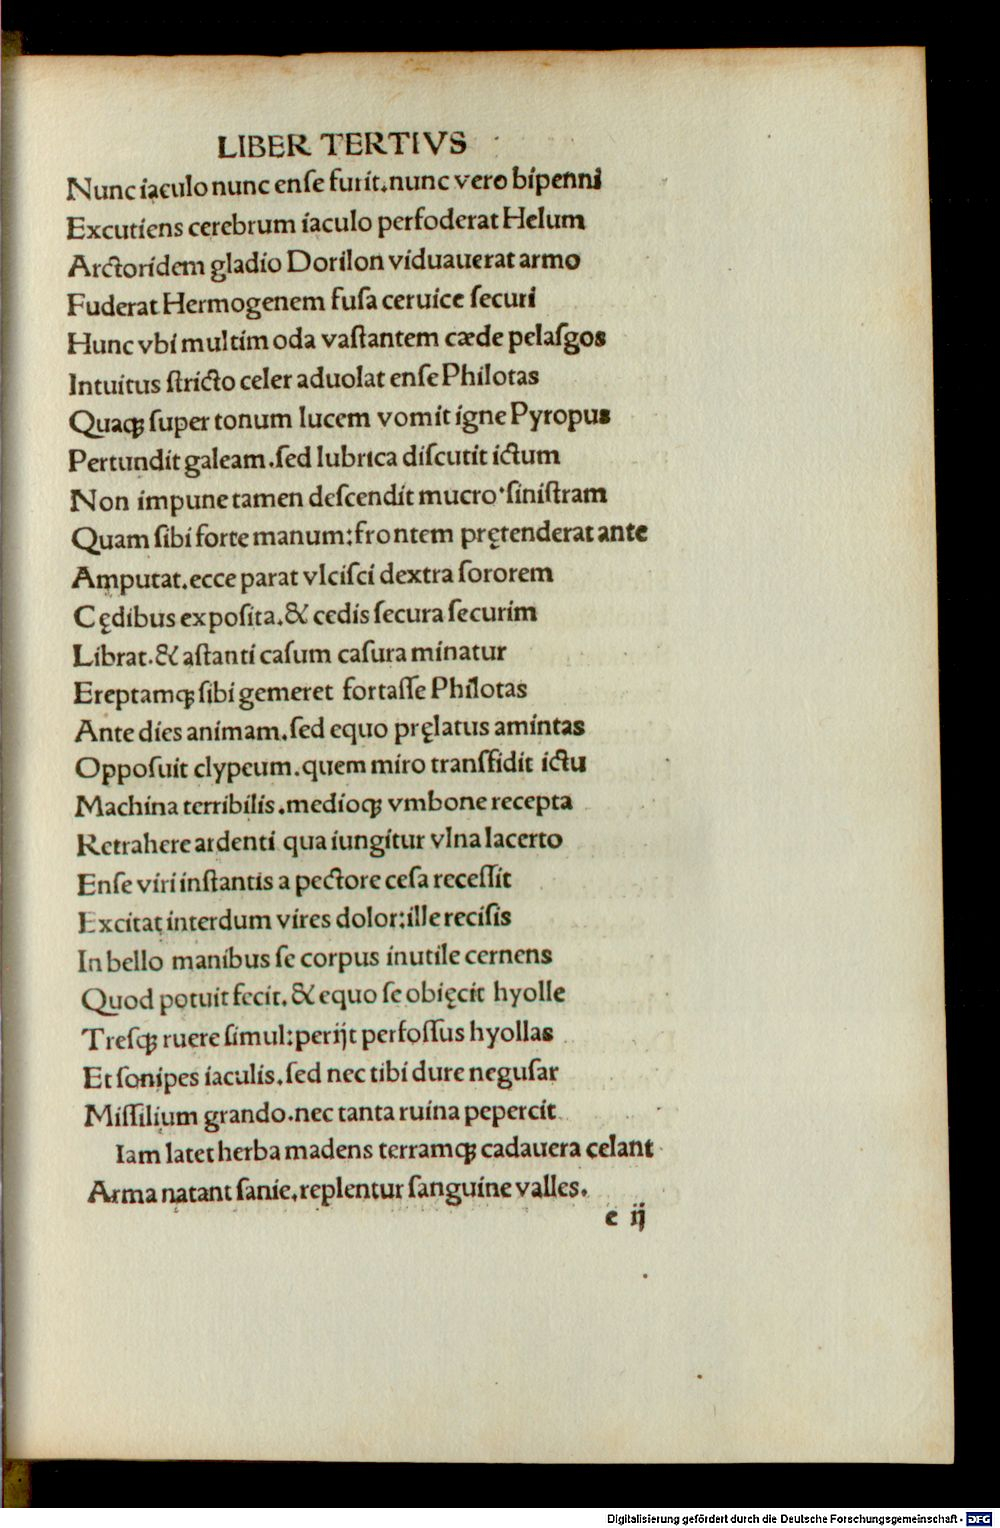 LIBER TERTIVS
Nunc iaculo nunc enſe furit.nunc vero bipenni
Excutiens cerebrum iaculo perfoderat Helum
Arctoridem gladio Dorilon viduauerat armo
Fuderat Hermogenem fuſa ceruice ſecuri
Hunc vbi multimoda vaſtantem cæde pelaſgos
Intuitus ſtricto celer aduolat enſe Philotas
Quaqꝫ ſuper tonum lucem vomit igne Pyropus
Pertundit galeam.ſed lubrica diſcutit ictum
Non impune tamen deſcendit mucro·ſiniſtram
Quam ſibi forte manum:frontem prętenderat ante
Amputat.ecce parat vlciſci dextra ſororem
Cędibus expoſita.& cedis ſecura ſecurim
Librat.& aſtanti caſum caſura minatur
Ereptamqꝫ ſibi gemeret fortaſſe Philotas
Ante dies animam.ſed equo pręlatus amintas
Oppoſuit clypeum.quem miro transfidit ictu
Machina terribilis.medioqꝫ vmbone recepta
Retrahere ardenti qua iungitur vlna lacerto
Enſe viri inſtantis a pectore ceſa receſſit
Excitat interdum vires dolor:ille reciſis
In bello manibus ſe corpus inutile cernens
Quod potuit fecit.& equo ſe obięcit hyolle
Treſqꝫ ruere ſimul:perijt perfoſſus hyollas
Et ſonipes iaculis.ſed nec tibi dure neguſar
Miſſilium grando.nec tanta ruina pepercit
Iam latet herba madens terramqꝫ cadauera celant
Arma natant ſanie.replentur ſanguine valles.
e ij
Digitalisierung gefördert durch die Deutsche Forschungsgemeinschaft - DFG